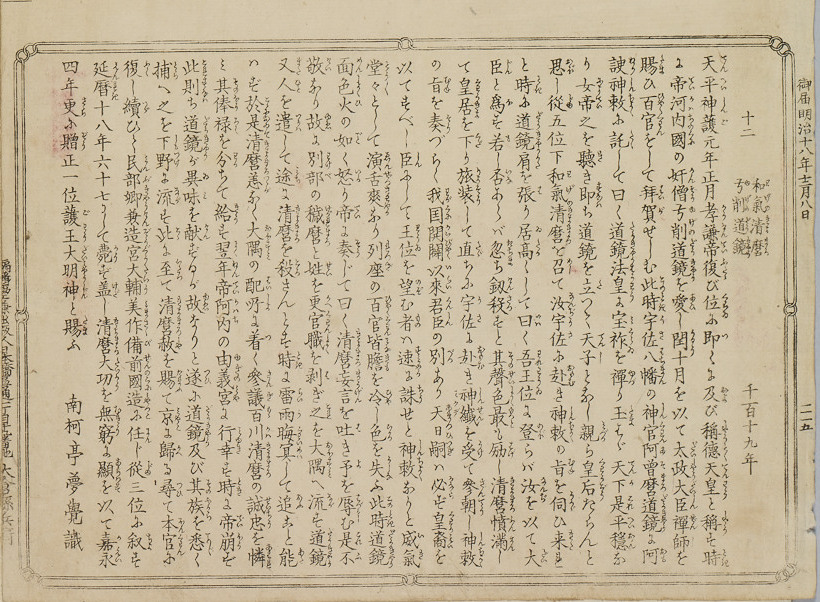 御届明治十八年十二月八日
二ノ五
十二
和氣清麿
弓削道鏡
千百十九年
天平神護元年正月孝謙帝復び位に即くに及び稱德天皇と稱せ時
に帝河内國の奸僧弓削道鏡を愛し閏十月を以て太政大臣禪師を
賜ひ百官をして拜賀せしむ此時宇佐八幡の神官阿曽麿道鏡に阿
諛神敕に託して曰く道鏡法皇に宝祚を禪り玉はゞ天下是平穩な
り女帝之を聽き即ち道鏡を立つて天子となし親ら皇后たらんと
思し從五位下和氣清麿を召て汝宇佐に赴き神敕の旨を伺ひ来れ
と時に道鏡肩を張り居高くして曰く吾王位に登らバ汝を以て大
臣と爲も若し否あらバ忽ち釼殺せと其聲色最も励し清麿憤滿し
て皇居を下り旅装して直ちに宇佐に赴き神鐵を受て參朝し神敕
の旨を奏づらく我国開闢以來君臣の別あり天日嗣ハ必ず皇裔を
以てすべし臣として王位を望む者ハ速に誅せと神敕なりと威氣
堂々として演舌爽なり列座の百官皆膽を冷し色を失ふ此時道鏡
面色火の如く怒り帝に奏して曰く清麿妄言を吐き予を辱む是不
敬なり故に別部の穢麿と姓を更官職を剥ぎ之を大隅へ流も道鏡
又人を遣して途に清麿を殺さんとも時に雷雨晦冥して追ふこと能
ハず於是清麿恙なく大隅の配所に着く參議百川清麿の誠忠を憐
ミ其俸禄を分ちて給も翌年帝河内の由義宮に行幸も時に帝崩も
此則ち道鏡が異味を献ずるが故なりと遂に道鏡及び其族を悉く
捕へ之を下野に流も此に至て清麿赦を賜て京に歸る尋て本官に
復し續ひて民部卿兼造宮大輔美作備前國造に任し從三位に叙も
延暦十八年六十七にして薨ず蓋 清麿大功を無窮に顯を以て嘉永
四年更に贈正一位護王大明神と賜ふ
南柯亭夢覺識